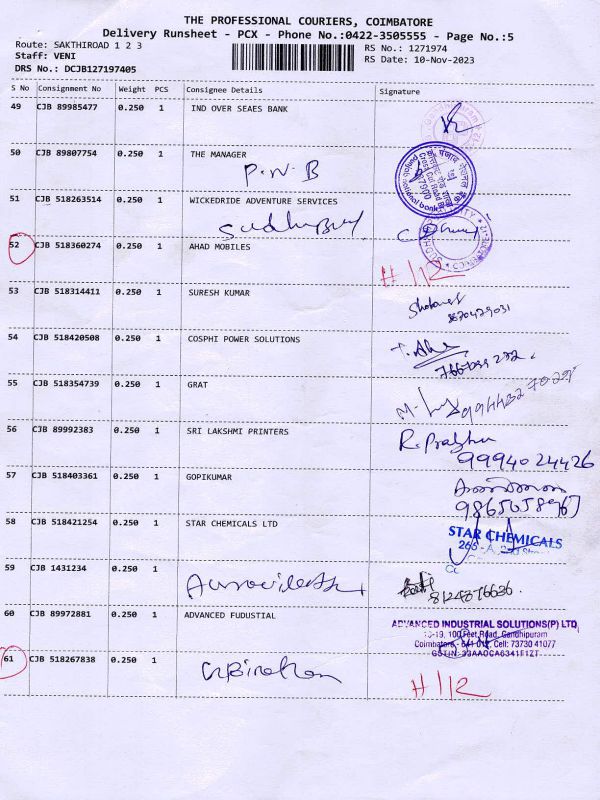 THE PROFESSIONAL COURIERS, COIMBATORE
Delivery Runsheet - PCX - Phone No.:0422-3505555 - Page No.:5
Route: SAKTHIROAD 1 2 3
RS No.: 1271974
Staff: VENI
RS Date: 10-Nov-2023
DRS No.: DCJB127197405
S No Consignment No Weight PCS Consignee Details Signature
49 CJB 89985477 0.250 1 IND OVER SEAES BANK
50 CJB 89807754 0.250 1 THE MANAGER
P.N.B
51 CJB 518263514 0.250 1 WICKEDRIDE ADVENTURE SERVICES
52 CJB 518360274 0.250 1 AHAD MOBILES
H/12
53 CJB 518314411 0.250 1 SURESH KUMAR
54 CJB 518420508 0.250 1 COSPHI POWER SOLUTIONS
55 CJB 518354739 0.250 1 GRAT
56 CJB 89992383 0.250 1 SRI LAKSHMI PRINTERS
R. Prabhu
9994024426
57 CJB 518403361 0.250 1 GOPIKUMAR
58 CJB 518421254 0.250 1 STAR CHEMICALS LTD
STAR CHEMICALS
59 CJB 1431234 0.250 1
8124876636.
60 CJB 89972881 0.250 1 ADVANCED FUDUSTIAL
ADVANCED INDUSTRIAL SOLUTIONS(P) LTD
100 Feet Road, Gandhipuram
Coimbatore - 641 012, Cell: 73730 41077
61 CJB 518267838 0.250 1
H/12